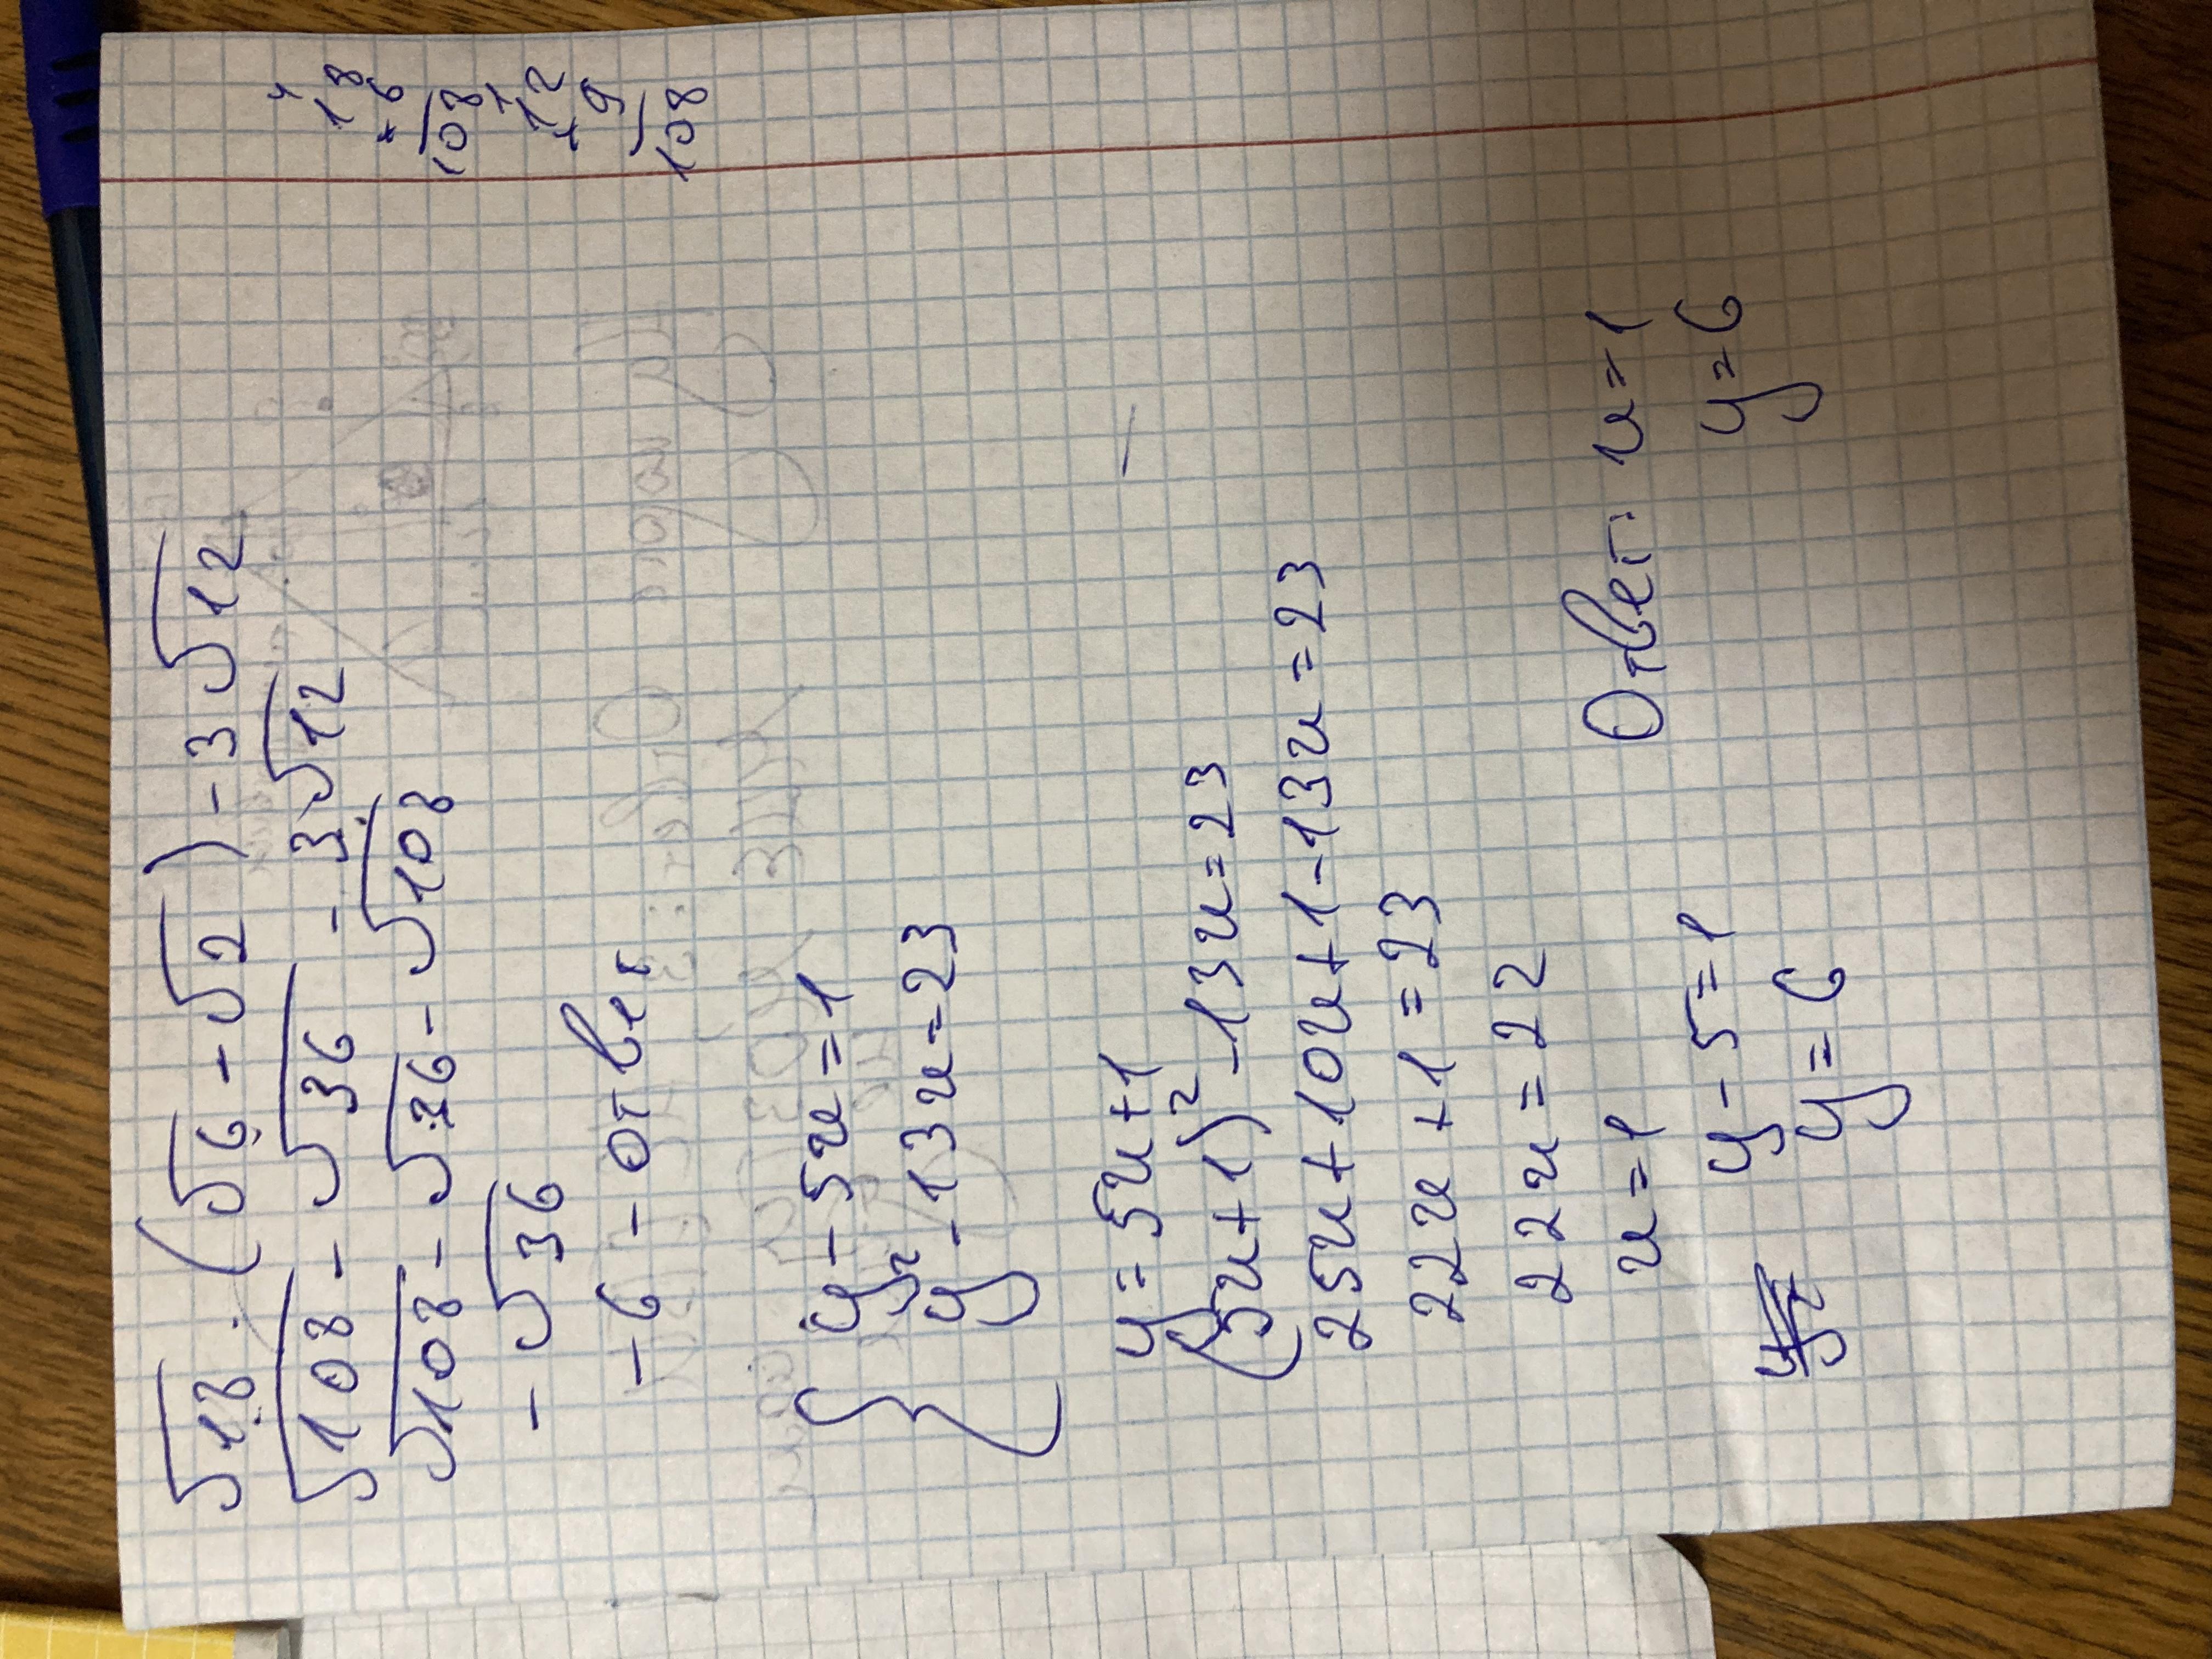 √18 · (√6 - √2) - 3√12
√108 - √36 - 3·√12
√108 - √36 - √108
- √36
- 6 - ответ
{ y - 5x = 1
y² - 13x = 23
y = 5x + 1
(5x + 1)² - 13x = 23
25x + 10x + 1 - 13x = 23
22x + 1 = 23
22x = 22
x = 1
y - 5 = 1
y = 6
Ответ: x = 1
y = 6
18
× 6
108
12
× 9
108